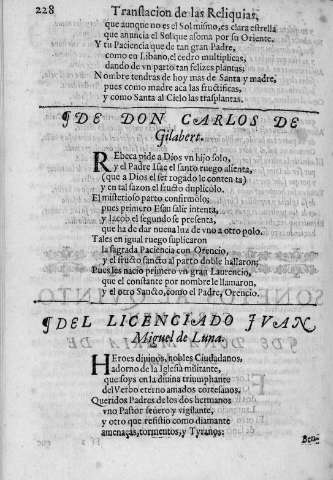 228 Translacion de las Reliquias,
que aunque no es el Sol mismo, es clara estrella
que anuncia el Sol que asoma por su Oriente.
Y tu Paciencia que de tan gran Padre,
como en Libano, el cedro multiplicas,
dando de vn parto tan felizes plantas;
Nombre tendras de hoy mas de Santa y madre,
pues como madre aca las fructificas,
y como Santa al Cielo las trasplantas.
¶DE DON CARLOS DE
Gilabert.
REbeca pide a Dios vn hijo solo,
y el Padre Isac el santo ruego alienta,
(que a Dios el ser rogado le contenta)
y en tal sazon el fructo duplicolo.
El misterioso parto confirmólo;
pues primero Esau salir intenta,
y Iacob el segundo se presenta,
que ha de dar nueua luz de vno a otro polo.
Tales en igual ruego suplicaron
la sagrada Paciencia con Orencio,
y el fructo sancto al parto doble hallaron;
Pues les nacio primero vn gran Laurencio,
que el constante por nombre le llamaron,
y el otro Sancto, como el Padre, Orencio.
¶DEL LICENCIADO IVAN
Miguel de Luna.
HEroes diuinos, nobles Ciudadanos,
adorno de la Iglesia militante,
que soys en la diuina triumphante
del Verbo eterno amados cortesanos,
Queridos Padres de los dos hermanos
vno Pastor seuero y vigilante,
y otro que resistio como diamante
amenaças, tormentos, y Tyranos: